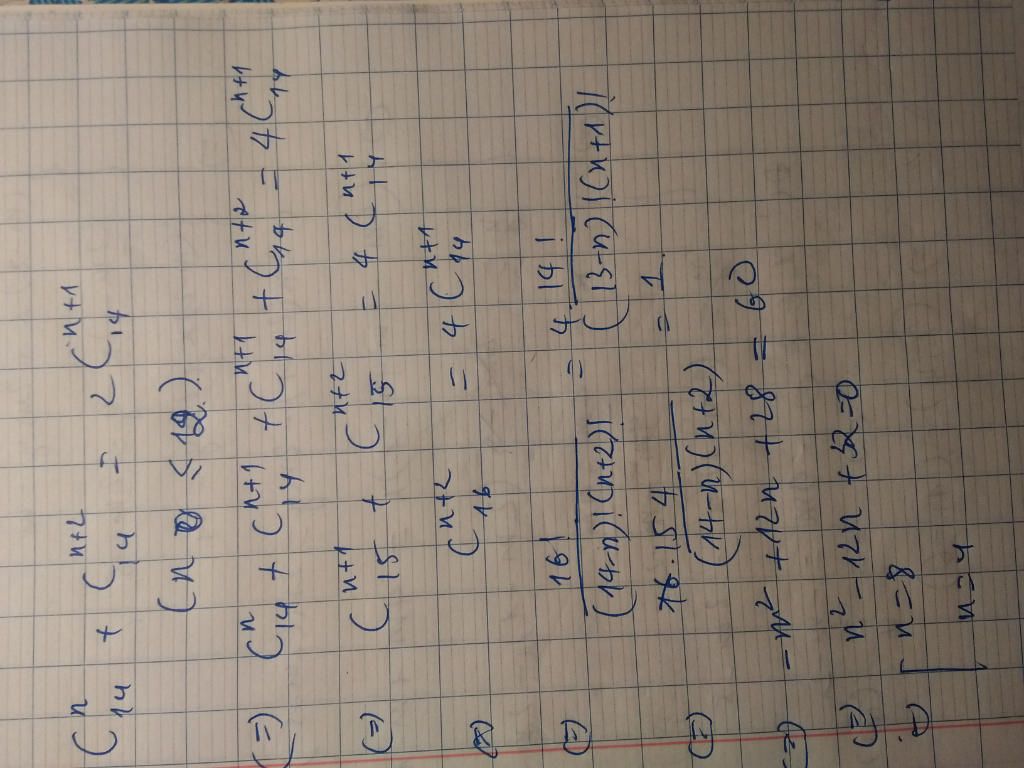 C_{14}^{n} + C_{14}^{n+2} = 2C_{14}^{n+1}
(n ≤ 12)
(=) C_{14}^{n} + C_{14}^{n+1} + C_{14}^{n+1} + C_{14}^{n+2} = 4C_{14}^{n+1}
(=) C_{15}^{n+1} + C_{15}^{n+2} = 4C_{14}^{n+1}
(=) C_{16}^{n+2} = 4C_{14}^{n+1}
(=) \frac{16!}{(14-n)!(n+2)!} = 4.\frac{14!}{(13-n)!(n+1)!}
(=) \frac{16.15 4}{(14-n)(n+2)} = 1
(=) -n² + 12n + 28 = 60
(=) n² - 12n + 32 = 0
(=) [n = 8
n = 4